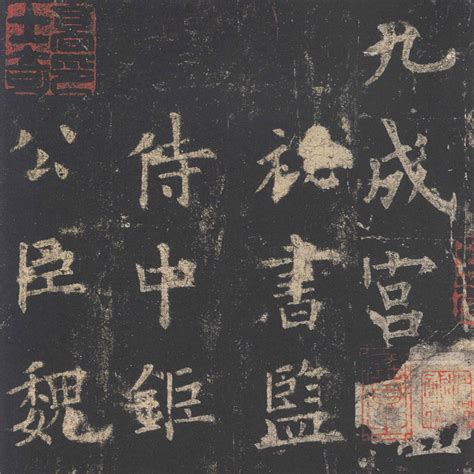 九成宮
祕書監
侍中鉅
公臣魏